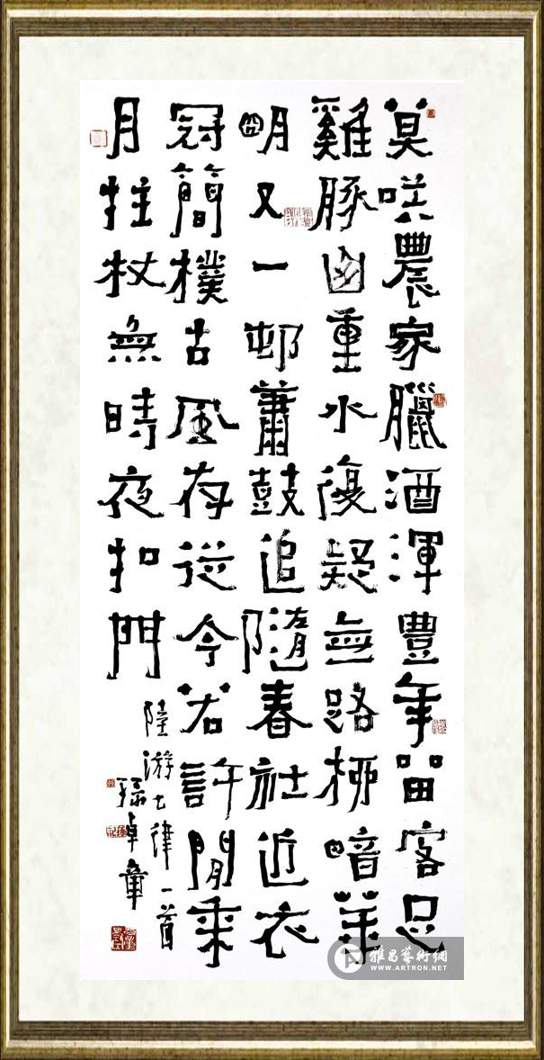 莫咲農家臘酒渾豐年畱客足
雞豚山重水復疑無路柳暗華
明又一邨蕭鼓追隨春社近衣
冠簡樸古風存從今若許閒乘
月拄杖無時夜扣門
陸游七律一首
孫卓章
雅昌藝術網
WWW.ARTRON.NET